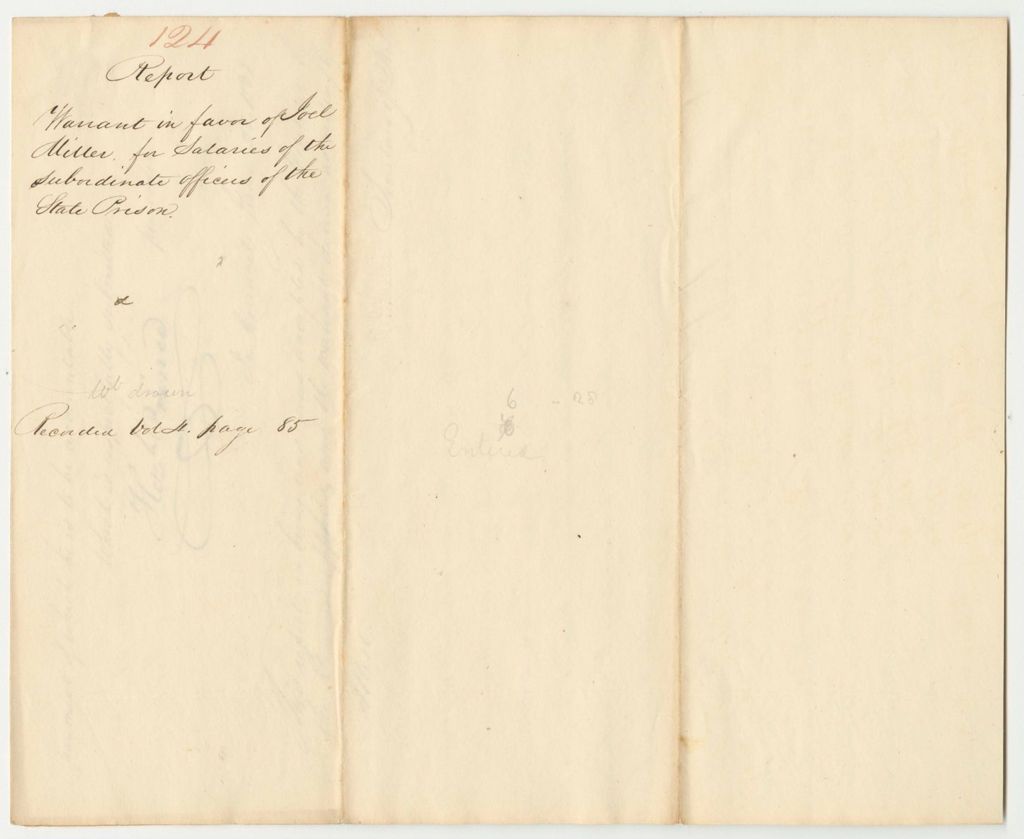 124
Report
Warrant in favor of Joel
Miller. for Salaries of the
subordinate officers of the
State Prison.
Wt drawn
Recorded Vol 4. page 85
6 - 25
Entered